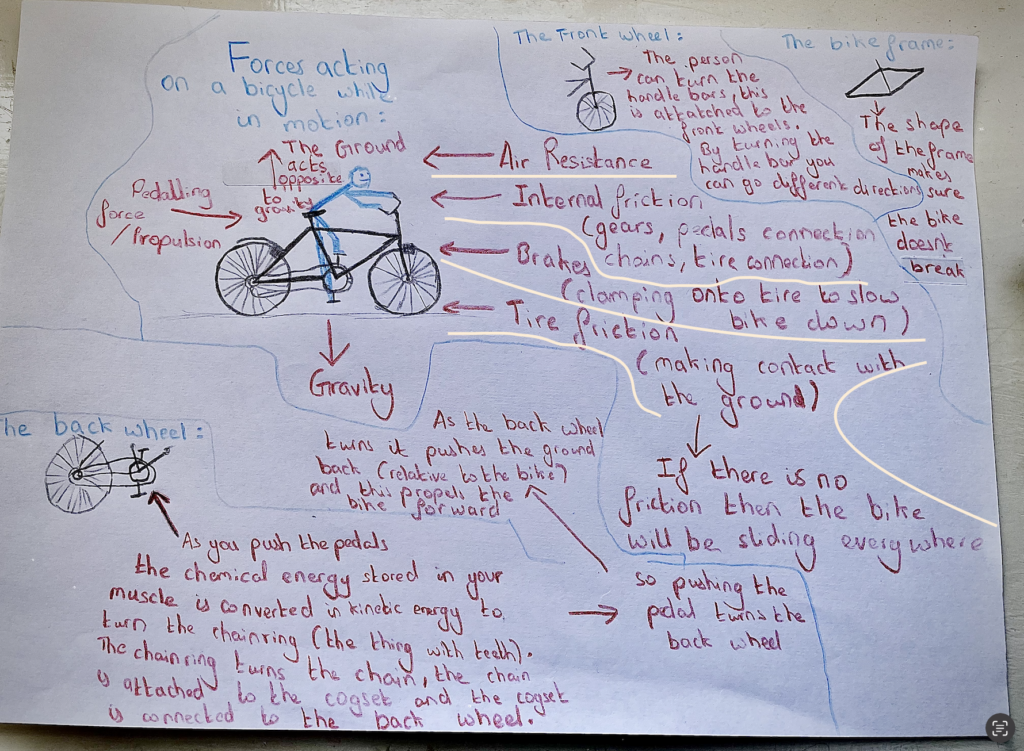 Forces acting
on a bicycle while
in motion:
The Ground
acts
opposite
to
gravity
Pedalling
force
/Propulsion
Gravity
Air Resistance
Internal friction
(gears, pedals connection
chains, tire connection)
Brakes
(clamping onto tire to slow
bike down)
Tire friction
(making contact with
the ground)
If there is no
friction then the bike
will be sliding everywhere
The Front wheel:
The person
can turn the
handle bars, this
is attatched to the
front wheels.
By turning the
handle bar you
can go different directions
The bike frame:
The shape
of the frame
makes
sure
the bike
doesnt
break
The back wheel:
As you push the pedals
the chemical energy stored in your
muscle is converted in kinetic energy to
turn the chainring (the thing with teeth).
The chainring turns the chain, the chain
is attached to the cogset and the cogset
is connected to the back wheel.
so pushing the
pedal turns the
back wheel
As the back wheel
turns it pushes the ground
back (relative to the bike)
and this propels the
bike forward